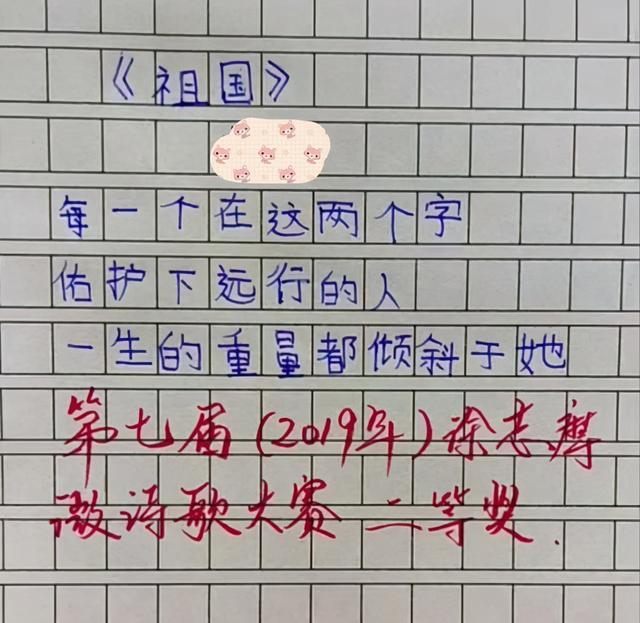 《祖国》
每一个在这两个字
佑护下远行的人
一生的重量都倾斜于她
第七届(2019年)徐志摩
微诗歌大赛 二等奖.